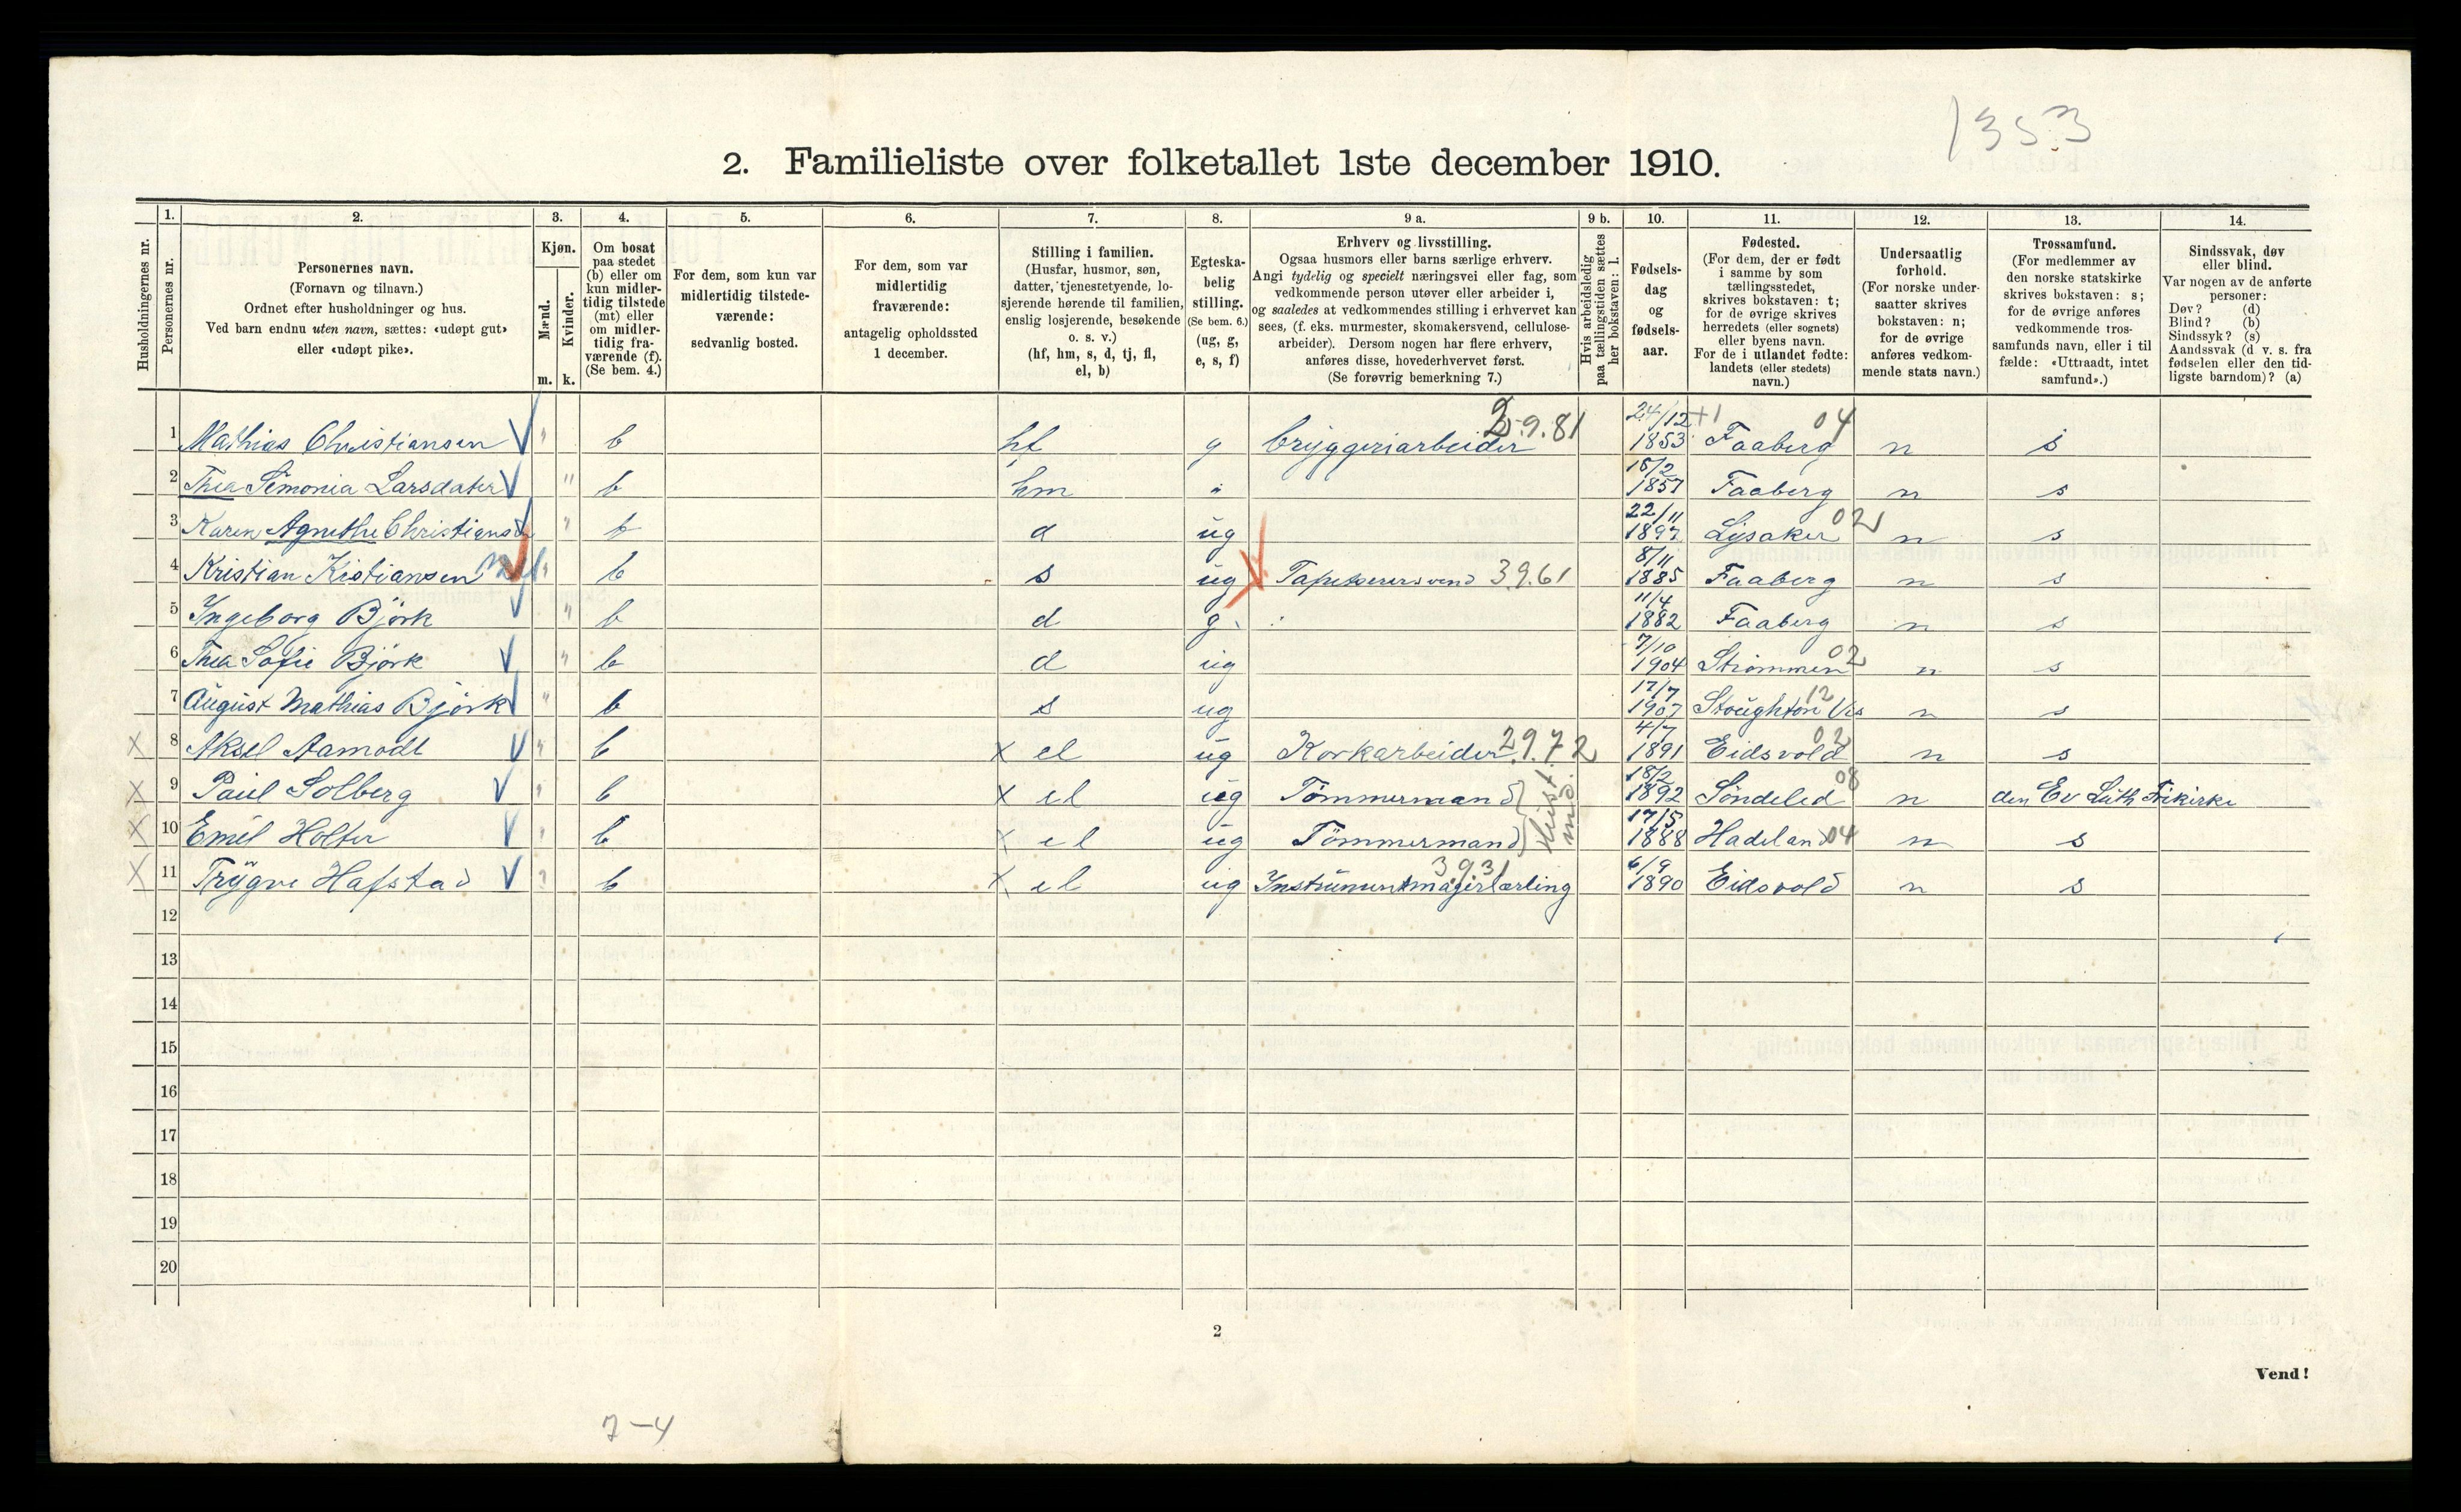 1353
2. Familieliste over folketallet 1ste december 1910.
1. 2. 3. 4. 5. 6. 7. 8. 9 a. 9 b. 10. 11. 12. 13. 14.
Husholdningernes nr.
Personernes nr.
Personernes navn.
(Fornavn og tilnavn.)
Ordnet efter husholdninger og hus.
Ved barn endnu uten navn, sættes: «udøpt gut»
eller «udøpt pike».
Kjøn.
Mænd.
Kvinder.
m. k.
Om bosat
paa stedet
(b) eller om
kun midler-
tidig tilstede
(mt) eller
om midler-
tidig fra-
værende (f).
(Se bem. 4.)
For dem, som kun var
midlertidig tilstede-
værende:
sedvanlig bosted.
For dem, som var
midlertidig
fraværende:
antagelig opholdssted
1 december.
Stilling i familien.
(Husfar, husmor, søn,
datter, tjenestetyende, lo-
sjerende hørende til familien,
enslig losjerende, besøkende
o. s. v.)
(hf, hm, s, d, tj, fl,
el, b)
Egteska-
belig
stilling.
(Se bem. 6.)
(ug, g,
e, s, f)
Erhverv og livsstilling.
Ogsaa husmors eller barns særlige erhverv.
Angi tydelig og specielt næringsvei eller fag, som
vedkommende person utøver eller arbeider i,
og saaledes at vedkommendes stilling i erhvervet kan
sees, (f. eks. murmester, skomakersvend, cellulose-
arbeider). Dersom nogen har flere erhverv,
anføres disse, hovederhvervet først.
(Se forøvrig bemerkning 7.)
Hvis arbeidsledig
paa tællingstiden sættes
her bokstaven: l.
Fødsels-
dag
og
fødsels-
aar.
Fødested.
(For dem, der er født
i samme by som
tællingsstedet,
skrives bokstaven: t;
for de øvrige skrives
herredets (eller sognets)
eller byens navn.
For de i utlandet fødte:
landets (eller stedets)
navn.)
Undersaatlig
forhold.
(For norske under-
saatter skrives
bokstaven: n;
for de øvrige
anføres vedkom-
mende stats navn.)
Trossamfund.
(For medlemmer av
den norske statskirke
skrives bokstaven: s;
for de øvrige anføres
vedkommende tros-
samfunds navn, eller i til
fælde: «Uttraadt, intet
samfund».)
Sindssvak, døv
eller blind.
Var nogen av de anførte
personer:
Døv? (d)
Blind? (b)
Sindssyk? (s)
Aandssvak (d v. s. fra
fødselen eller den tid-
ligste barndom)? (a)
1 Mathias Christiansen " b hf g bryggeriarbeider 2.9.81 24/12 1853 +1 Faaberg 04 n s
2 Thea Simonia Larsdater " b hm " 15/2 1857 Faaberg n s
3 Karen Agnethe Christians " b d ug 22/11 1897 Lysaker 02 n s
4 Kristian Kistiansen " b s ug Tapetserersvend 3.9.61 8/11 1885 Faaberg n s
5 Ingeborg Bjørk " b d g 11/4 1882 Faaberg n s
6 Thea Sofie Bjørk " b d ug 7/10 1904 Strømmen 02 n s
7 August Mathias Bjørk " b s ug 17/7 1907 Stoughton Vis 12 n s
X 8 Aksel Aamodt " b X el ug Korkarbeider 29.72 4/7 1891 Eidsvold 02 n s
X 9 Paul Solberg " b X el ug Tømmermand 18/2 1892 Søndeled 08 n den Ev Luth Frikirke
X 10 Emil Holter " b X el ug Tømmermand 17/5 1888 Hadeland 04 n s
X 11 Trygve Hafstad " b X el ug Instrumentmagerlærling 3.9.31 6/9 1890 Eidsvold n s
12
13
14
15
16
17
18
19
20
2
Vend!
7–4